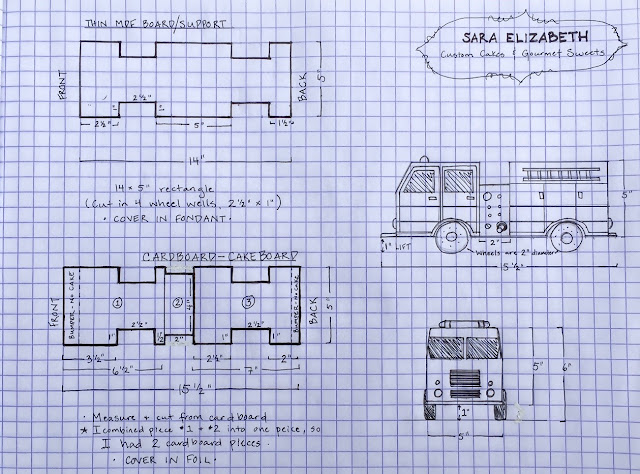 THIN MDF BOARD/SUPPORT
FRONT
BACK
5"
2½"
2½"
5"
1½"
14"
14 × 5" rectangle
(Cut in 4 wheel wells, 2½" × 1")
• COVER IN FONDANT •
SARA ELIZABETH
Custom Cakes & Gourmet Sweets
5"
1" LIFT
2"
Wheels are 2" diameter
15½"
CARDBOARD - CAKE BOARD
FRONT
BUMPER - NO CAKE
①
②
③
4"
BUMPER - NO CAKE
BACK
5"
2½"
2½"
1"
½"
2"
1"
1"
3½"
2½"
2"
6½"
7"
15½"
• Measure + cut from cardboard
* I combined piece #1 + #2 into one peice, so
I had 2 cardboard pieces.
• COVER IN FOIL •
5"
6"
1"
5"